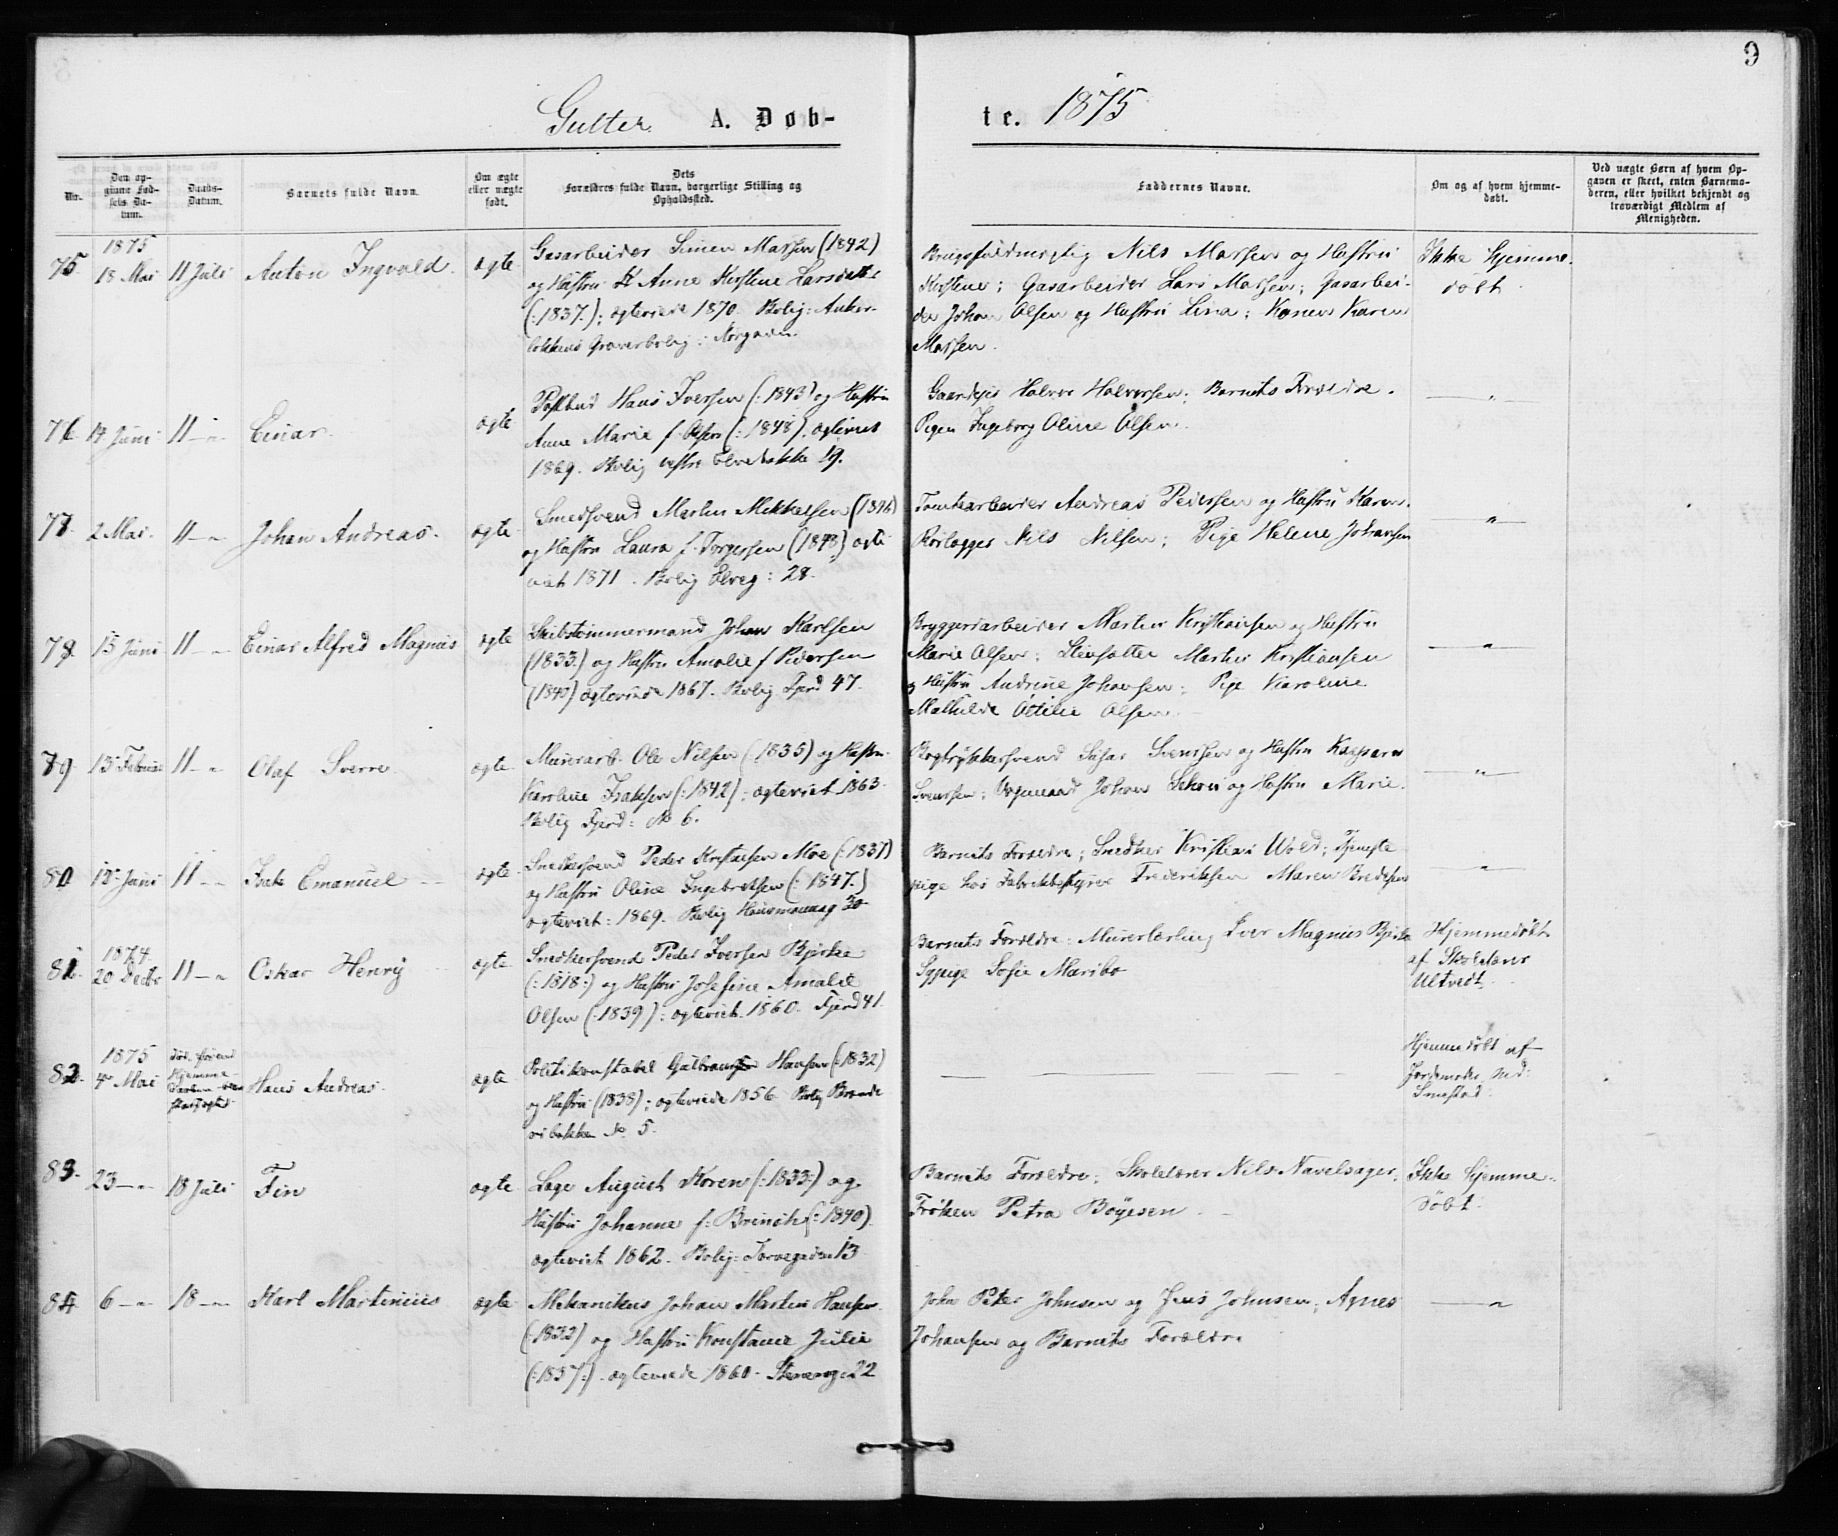 9
Gutter. A. Døb-te. 1875
Nr.
Den op-
givne Fød-
sels Da-
tum.
Daabs-
Datum.
Barnets fulde Navn.
Om ægte
eller uægte
født.
Dets
Forældres fulde Navn, borgerlige Stilling og
Opholdssted.
Faddernes Navne.
Om og af hvem hjemme-
døbt.
Ved uægte Børn af hvem Op-
gaven er skeet, enten Barnemo-
deren, eller hvilket bekjendt og
troværdigt Medlem af
Menigheden.
1875
75 18 Mai 11 Juli Anton Ingvald. ægte
Gasarbeider Simen Madsen (1842)
og Hustru Anne Kirstine Larsdatter
(:1837.); ægteviede 1870. Bolig: Anker-
løkkens Graverbolig: Norgaden
Brugsfuldmægtig Nils Madsen og Hustru
Kirstine; Gasarbeider Lars Madsen; Gasarbei-
der Johan Olsen og Hustru Lina; Konen Karen
Madsen.
Ikke hjemme-
døbt.
76 14 Juni 11 — " Einar. ægte
Postbud Hans Iversen (:1843) og Hustru
Anne Marie f. Olsen (:1848). ægteviet
1869. Bolig vestre Elvebakke 19.
Halvor Halvorsen; Barnets Forældre.
Pigen Ingeborg Oline Olsen.
— " —
77. 2 Mai. 11 — " Johan Andreas. ægte
Smedsvend Martin Mikkelsen (1846)
og Hustru Laura f. Torgersen (1848) ægte-
viet 1871. Bolig Elveg: 28.
Tomtearbeider Andreas Pedersen og Hustru Karen.
Rørlægger Nils Nilsen; Pige Helene Johansen
— " —
78. 15 Juni 11 — " Einar Alfred Magnus ægte
Skibstømmermand Johan Karlsen
(1833.) og Hustru Amalie f Pedersen
(1840) ægteviede 1867. Bolig Fjerd 47.
Bryggeriarbeider Martin Kristiansen og Hustru
Marie Olsen; Martin Kristiansen
og Hustru Andrine Johansen; Pige Karoline
Mathilde Otilie Olsen.
— " —
79. 13 Februar 11 — " Olaf Sverre. ægte
Murerarb. Ole Nilsen (1835) og Hustru
Karoline Isaksen (:1842); ægteviet 1863.
Bolig Fjerd: No 6.
Bogtrykkersvend Svensen og Hustru Kaspara
Svensen; Vognmand Johan og Hustru Marie.
— " —
80 12 Juni 11 — " Isak Emanuel ægte
Snedkersvend Peder Kristiansen Moe (:1837)
og Hustru Oline Ingebretsen (:1847.)
ægteviet: 1869. Bolig Hausmannsg 30
Barnets Forældre; Snedker Kristian Wold; Tjeneste-
pige hos Fabrikbestyrer Frederiksen Maren Bredesen
— " —
1874.
81 20 Decbr 11 — " Oskar Henry ægte
Snedkersvend Peder Iversen Bjerke
(:1818:) og Hustru Josefine Amalie
Olsen (:1839); ægteviet 1860. Fjerd 41
Barnets Forældre: Murerlærling Iver Magnus Bjerke
Sypige Sofie Maribo
Hjemmedøbt
af Skolelærer
Ultvedt.
1875
82. 4 Mai død førend
Hjemme-
Hans Andreas. ægte
Politikonstabel Gulbrand Hansen (:1832)
og Hustru (1838); ægteviede 1856. Bolig
No 5.
— — —
Hjemmedøbt af
Jordemoder Md:
Smestad.
83. 23 — " 18 Juli Fin ægte
Læge August Koren (:1833:) og
Hustru Johanne f: Brinch (:1840).
ægteviet 1862. Bolig: Torvegaden 13
Barnets Forældre; Skolelærer Nils Navelsager;
Frøken Petra Bøyesen.
Ikke hjemme-
døbt.
84 6 — " 18 — " Karl Martinius ægte
Mekanikus Johan Martin Hansen
(:1832) og Hustru Konstance Julie
(:1837:). ægteviede 1860. Stenersg: 22
John Peter Johnsen og Jens Johnsen; Agnes
Johansen og Barnets Forældre
— "